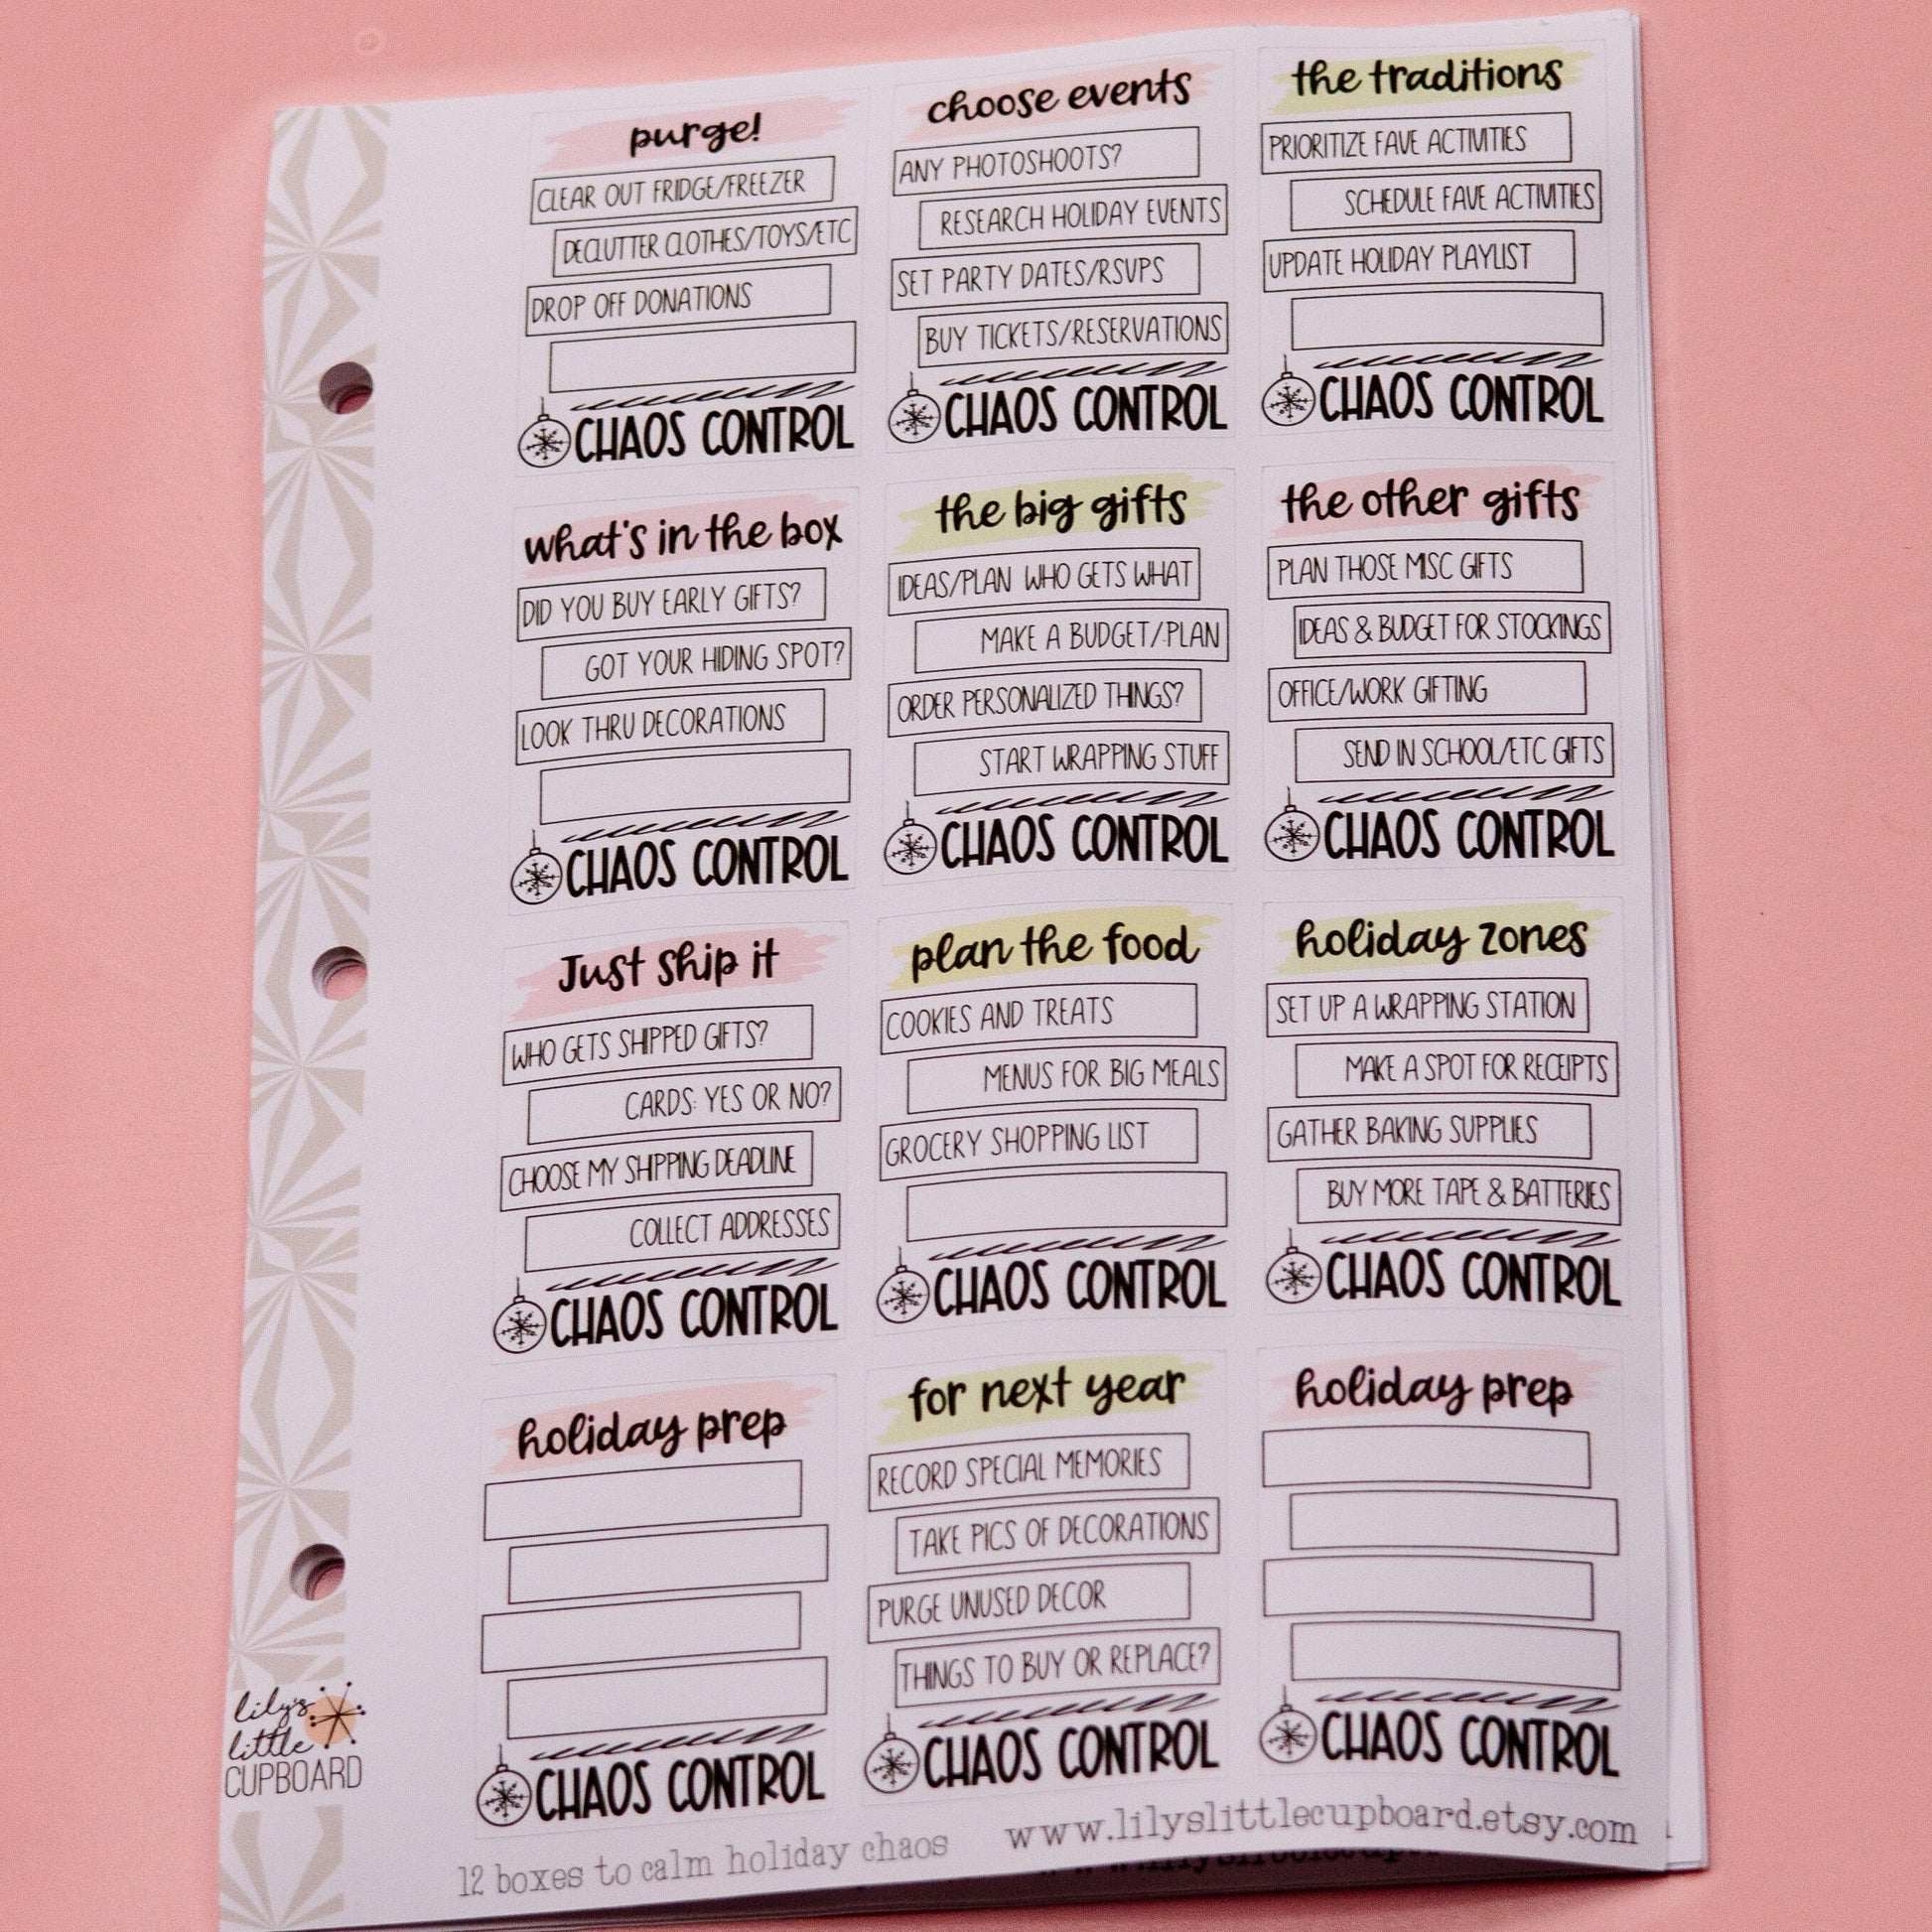 purge!
CLEAR OUT FRIDGE/FREEZER
DECLUTTER CLOTHES/TOYS/ETC
DROP OFF DONATIONS
CHAOS CONTROL
choose events
ANY PHOTOSHOOTS?
RESEARCH HOLIDAY EVENTS
SET PARTY DATES/RSVPS
BUY TICKETS/RESERVATIONS
CHAOS CONTROL
the traditions
PRIORITIZE FAVE ACTIVITIES
SCHEDULE FAVE ACTIVITIES
UPDATE HOLIDAY PLAYLIST
CHAOS CONTROL
what's in the box
DID YOU BUY EARLY GIFTS?
GOT YOUR HIDING SPOT?
LOOK THRU DECORATIONS
CHAOS CONTROL
the big gifts
IDEAS/PLAN WHO GETS WHAT
MAKE A BUDGET/PLAN
ORDER PERSONALIZED THINGS?
START WRAPPING STUFF
CHAOS CONTROL
the other gifts
PLAN THOSE MISC GIFTS
IDEAS & BUDGET FOR STOCKINGS
OFFICE/WORK GIFTING
SEND IN SCHOOL/ETC GIFTS
CHAOS CONTROL
Just ship it
WHO GETS SHIPPED GIFTS?
CARDS: YES OR NO?
CHOOSE MY SHIPPING DEADLINE
COLLECT ADDRESSES
CHAOS CONTROL
plan the food
COOKIES AND TREATS
MENUS FOR BIG MEALS
GROCERY SHOPPING LIST
CHAOS CONTROL
holiday zones
SET UP A WRAPPING STATION
MAKE A SPOT FOR RECEIPTS
GATHER BAKING SUPPLIES
BUY MORE TAPE & BATTERIES
CHAOS CONTROL
holiday prep
CHAOS CONTROL
for next year
RECORD SPECIAL MEMORIES
TAKE PICS OF DECORATIONS
PURGE UNUSED DECOR
THINGS TO BUY OR REPLACE?
CHAOS CONTROL
holiday prep
CHAOS CONTROL
lily's
little
CUPBOARD
12 boxes to calm holiday chaos
www.lilyslittlecupboard.etsy.com